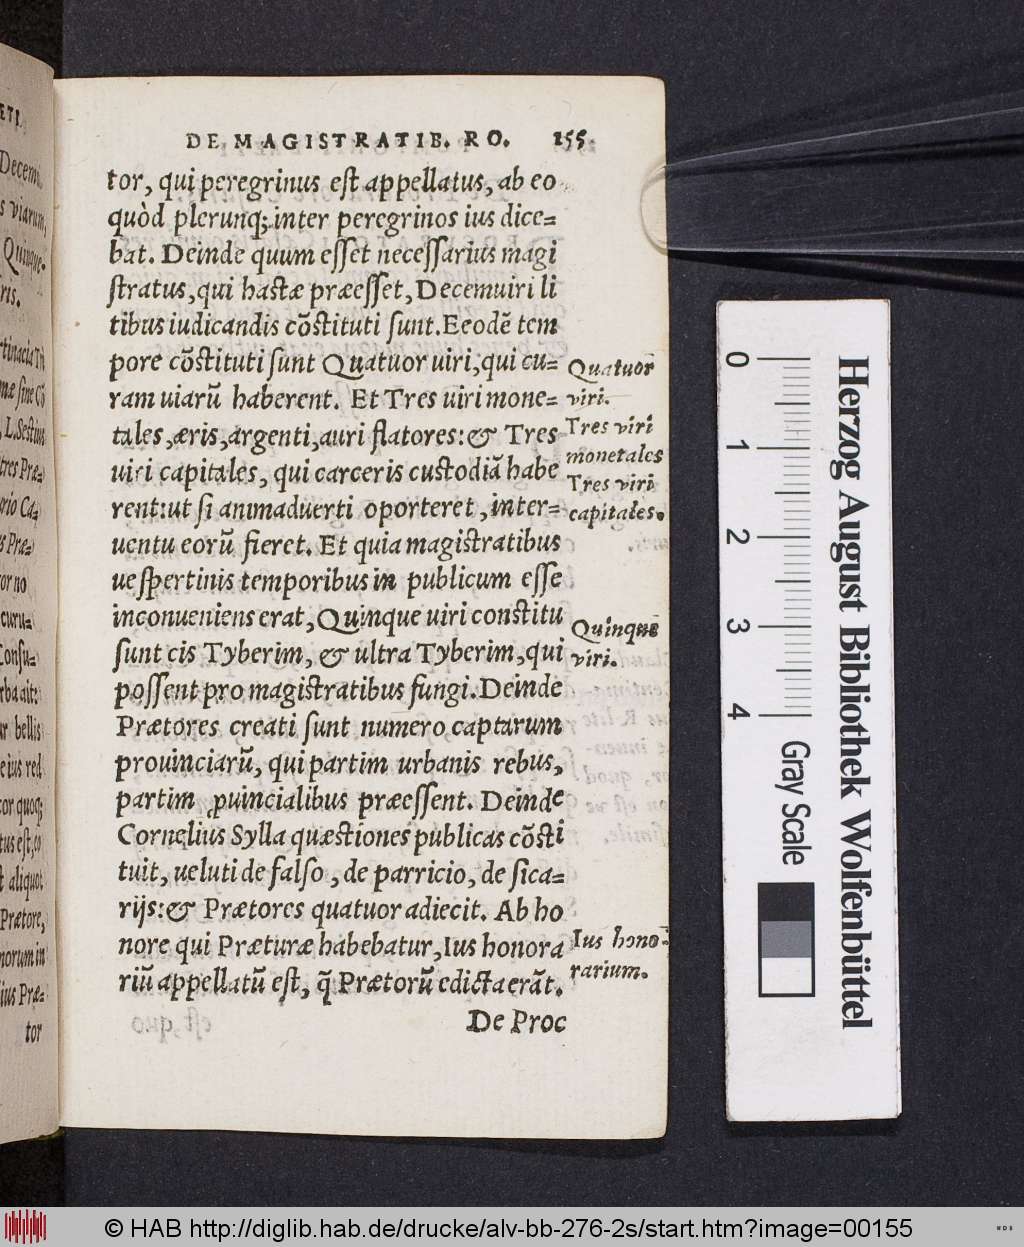 DE MAGISTRATIB. RO. 155
tor, qui peregrinus est appellatus, ab eo
quòd plerunq; inter peregrinos ius dice=
bat. Deinde quum esset necessarius magi
stratus, qui hastæ præesset, Decemuiri li
tibus iudicandis cōstituti sunt. Eeodē tem
pore cōstituti sunt Quatuor uiri, qui cu=
ram uiarū haberent. Et Tres uiri mone=
tales, æris, argenti, auri flatores: & Tres
uiri capitales, qui carceris custodiā habe
rent: ut si animaduerti oporteret, inter=
uentu eorū fieret. Et quia magistratibus
uespertinis temporibus in publicum esse
inconueniens erat, Quinque uiri constitu
sunt cis Tyberim, & ultra Tyberim, qui
possent pro magistratibus fungi. Deinde
Prætores creati sunt numero captarum
prouinciarū, qui partim urbanis rebus,
partim ꝓuincialibus præessent. Deinde
Cornelius Sylla quæstiones publicas cōsti
tuit, ueluti de falso, de parricio, de sica=
rijs: & Prætores quatuor adiecit. Ab ho
nore qui Præturæ habebatur, Ius honora
riū appellatū est, q̄ Prætorū edicta erāt.
De Proc
Quatuor
viri.
Tres viri
monetales
Tres viri
capitales.
Quinque
viri.
Ius hono=
rarium.
Decem
s viarum,
Quinque-
ris.
L. Sestius
tres Præ=
rio Ca=
s Præ=
or no
curu=
Consu=
rba ait:
ur bellis
e ius red
tor quoq;
tus est, eo
t aliquot
Prætore,
norum in
ius Præ=
tor
0
1
2
3
4
Gray Scale
Herzog August Bibliothek Wolfenbüttel
© HAB http://diglib.hab.de/drucke/alv-bb-276-2s/start.htm?image=00155